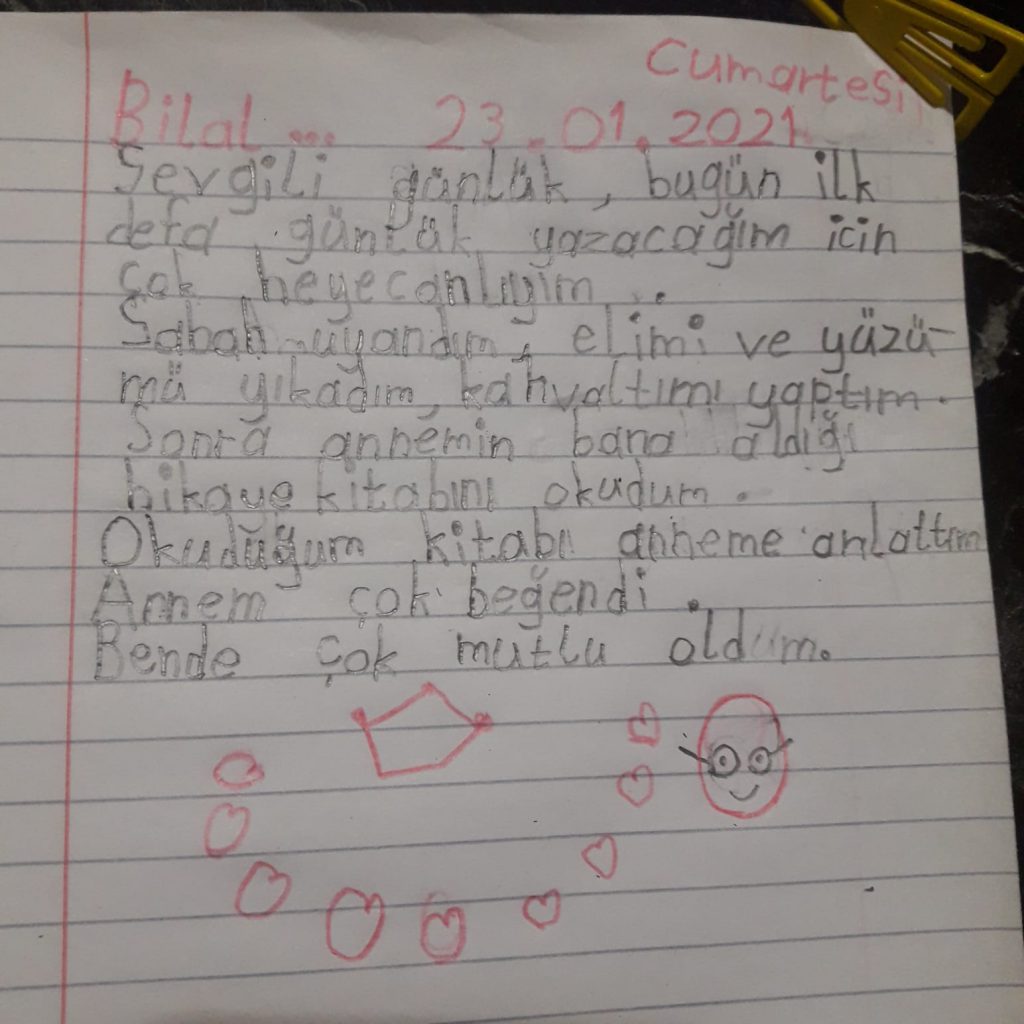 Cumartesi
Bilal... 23.01.2021
Sevgili günlük, bugün ilk
defa günlük yazacağım icin
çok heyecanlıyım...
Sabah uyandım, elimi ve yüzü-
mü yıkadım, kahvaltımı yaptım.
Sonra annemin bana aldığı
hikaye kitabını okudum.
Okuduğum kitabı anneme anlattım
Annem çok beğendi.
Bende çok mutlu oldum.